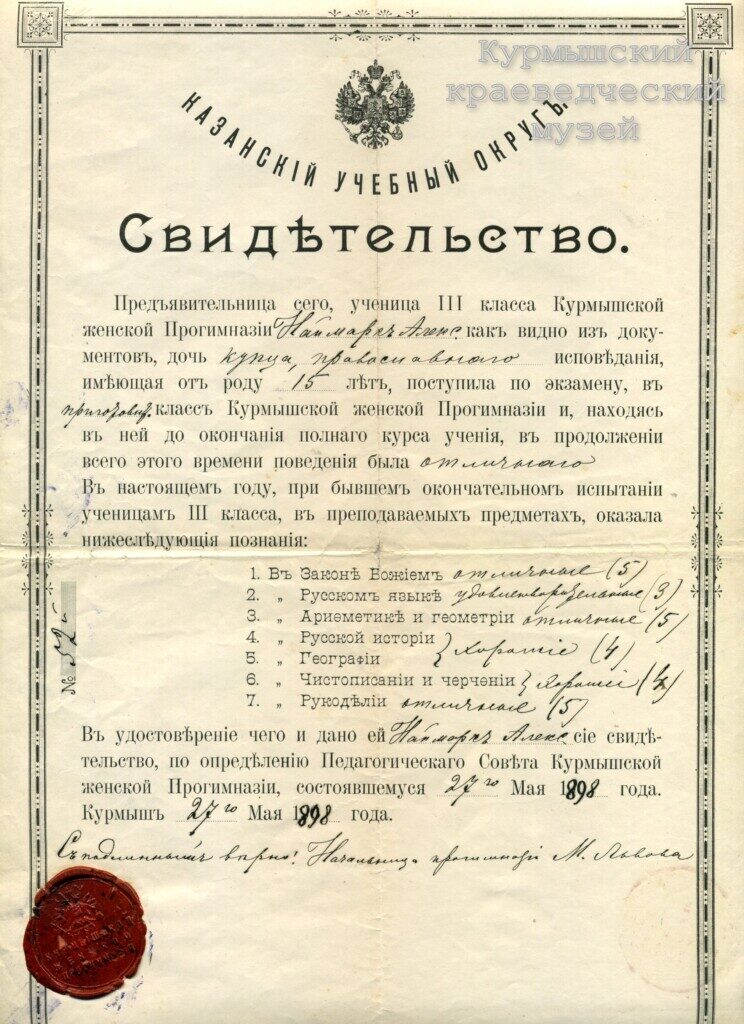 Курмышский
краеведческий
музей
КАЗАНСКІЙ УЧЕБНЫЙ ОКРУГЪ.
Свидѣтельство.
Предъявительница сего, ученица III класса Курмышской
женской Прогимназіи Наймаркъ Алекс. какъ видно изъ доку-
ментовъ, дочь купца, православнаго исповѣданія,
имѣющая отъ роду 15 лѣтъ, поступила по экзамену, въ
приготовит. классъ Курмышской женской Прогимназіи и, находясь
въ ней до окончанія полнаго курса ученія, въ продолженіи
всего этого времени поведенія была отличнаго
Въ настоящемъ году, при бывшемъ окончательномъ испытаніи
ученицамъ III класса, въ преподаваемыхъ предметахъ, оказала
нижеслѣдующія познанія:
1. Въ Законѣ Божіемъ отличные (5)
2. „ Русскомъ языкѣ удовлетворительные (3)
3. „ Ариѳметикѣ и геометріи отличные (5)
4. „ Русской исторіи
5. „ Географіи } хорошіе (4)
6. „ Чистописаніи и черченіи } хорошіе (4)
7. „ Рукодѣліи отличные (5)
№ 52й
Въ удостовѣреніе чего и дано ей Наймаркъ Алекс. сіе свидѣ-
тельство, по опредѣленію Педагогическаго Совѣта Курмышской
женской Прогимназіи, состоявшемуся 27го Мая 1898 года.
Курмышъ 27го Мая 1898 года.
Съ подлиннымъ вѣрно: Начальница прогимназіи М. Львова